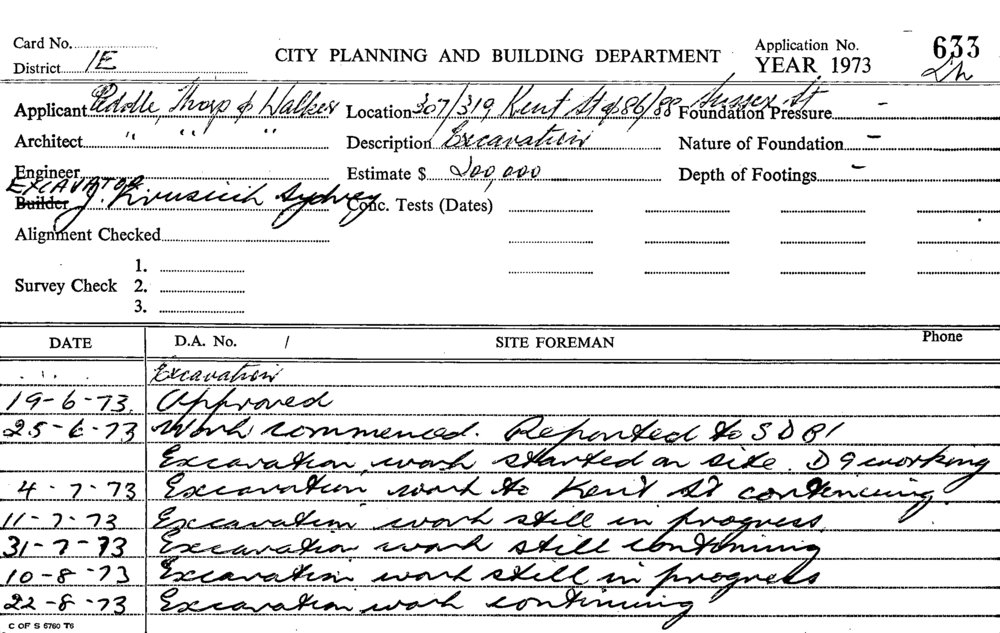 Card No. Application No. 633
District 1E CITY PLANNING AND BUILDING DEPARTMENT YEAR 1973
Applicant Peddle, Thorp & Walker Location 307/319 Kent St & 86/88 Sussex St Foundation Pressure –
Architect " " " Description Excavation Nature of Foundation –
Engineer Estimate $ 200,000 Depth of Footings –
EXCAVATOR
Builder J. Sydney Conc. Tests (Dates)
Alignment Checked
1.
Survey Check 2.
3.
DATE D.A. No. / SITE FOREMAN Phone
Excavation
19-6-73. Approved
25-6-73 Work commenced. Reported to SDBI
Excavation work started on site. D9 working
4-7-73 Excavation work to Kent St contincing.
11-7-73 Excavation work still in progress
31-7-73 Excavation work still contining
10-8-73 Excavation work still in progress
22-8-73 Excavation work contincing
C OF S 6760 T6